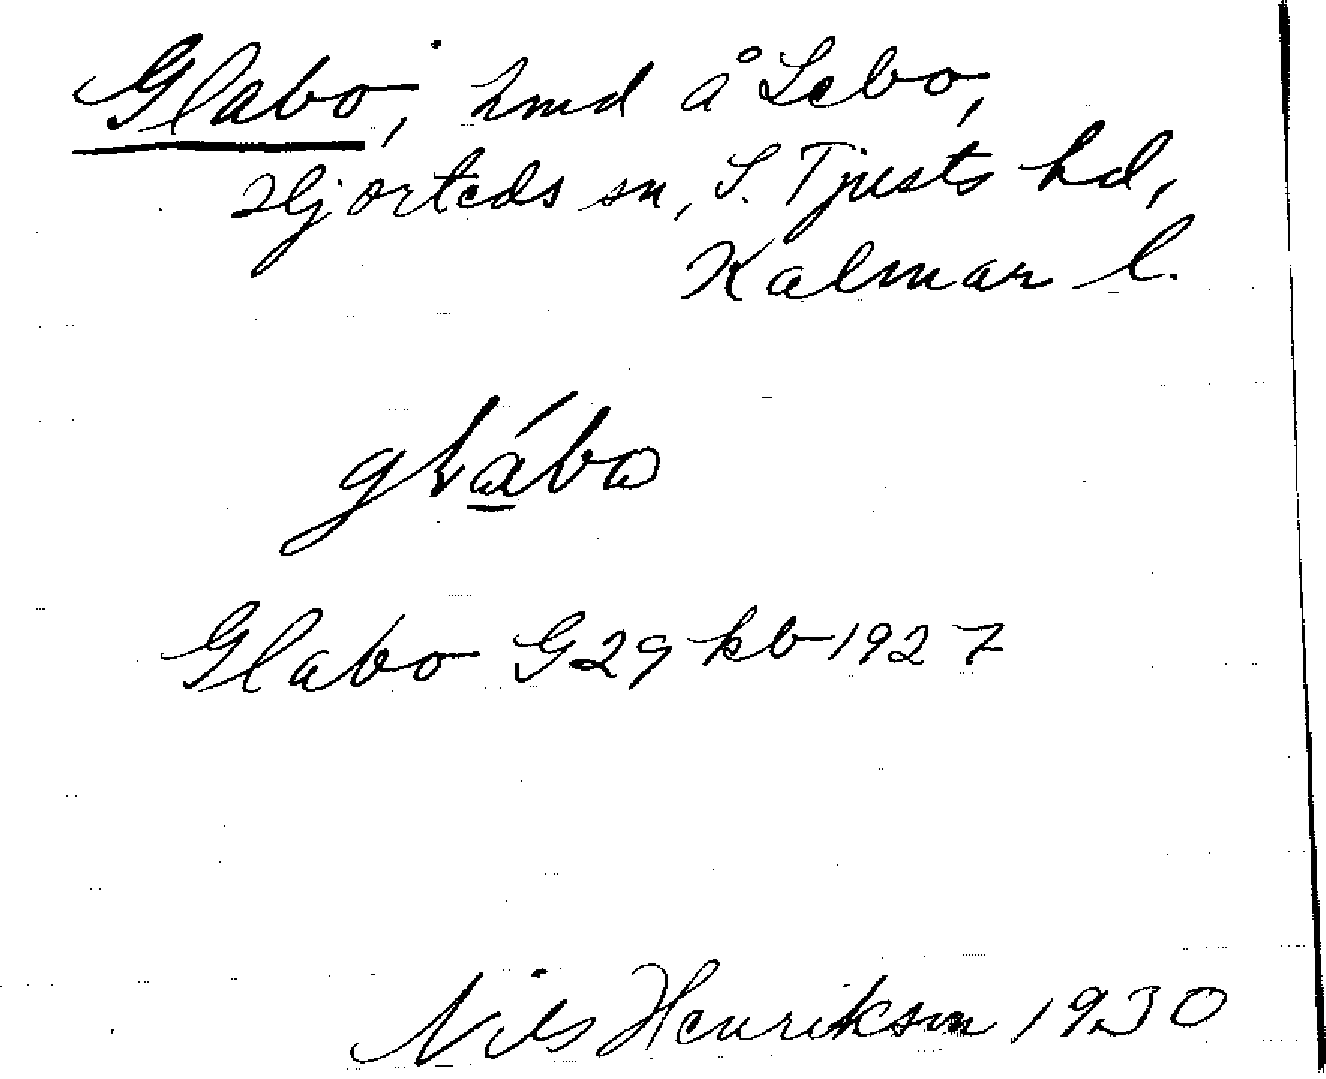 Glabo, hmd å Lebo,
Hjorteds sn, S. Tjusts hd,
Kalmar l.
glábo
Glabo G29 kb 1927
Nils Henriksson 1930